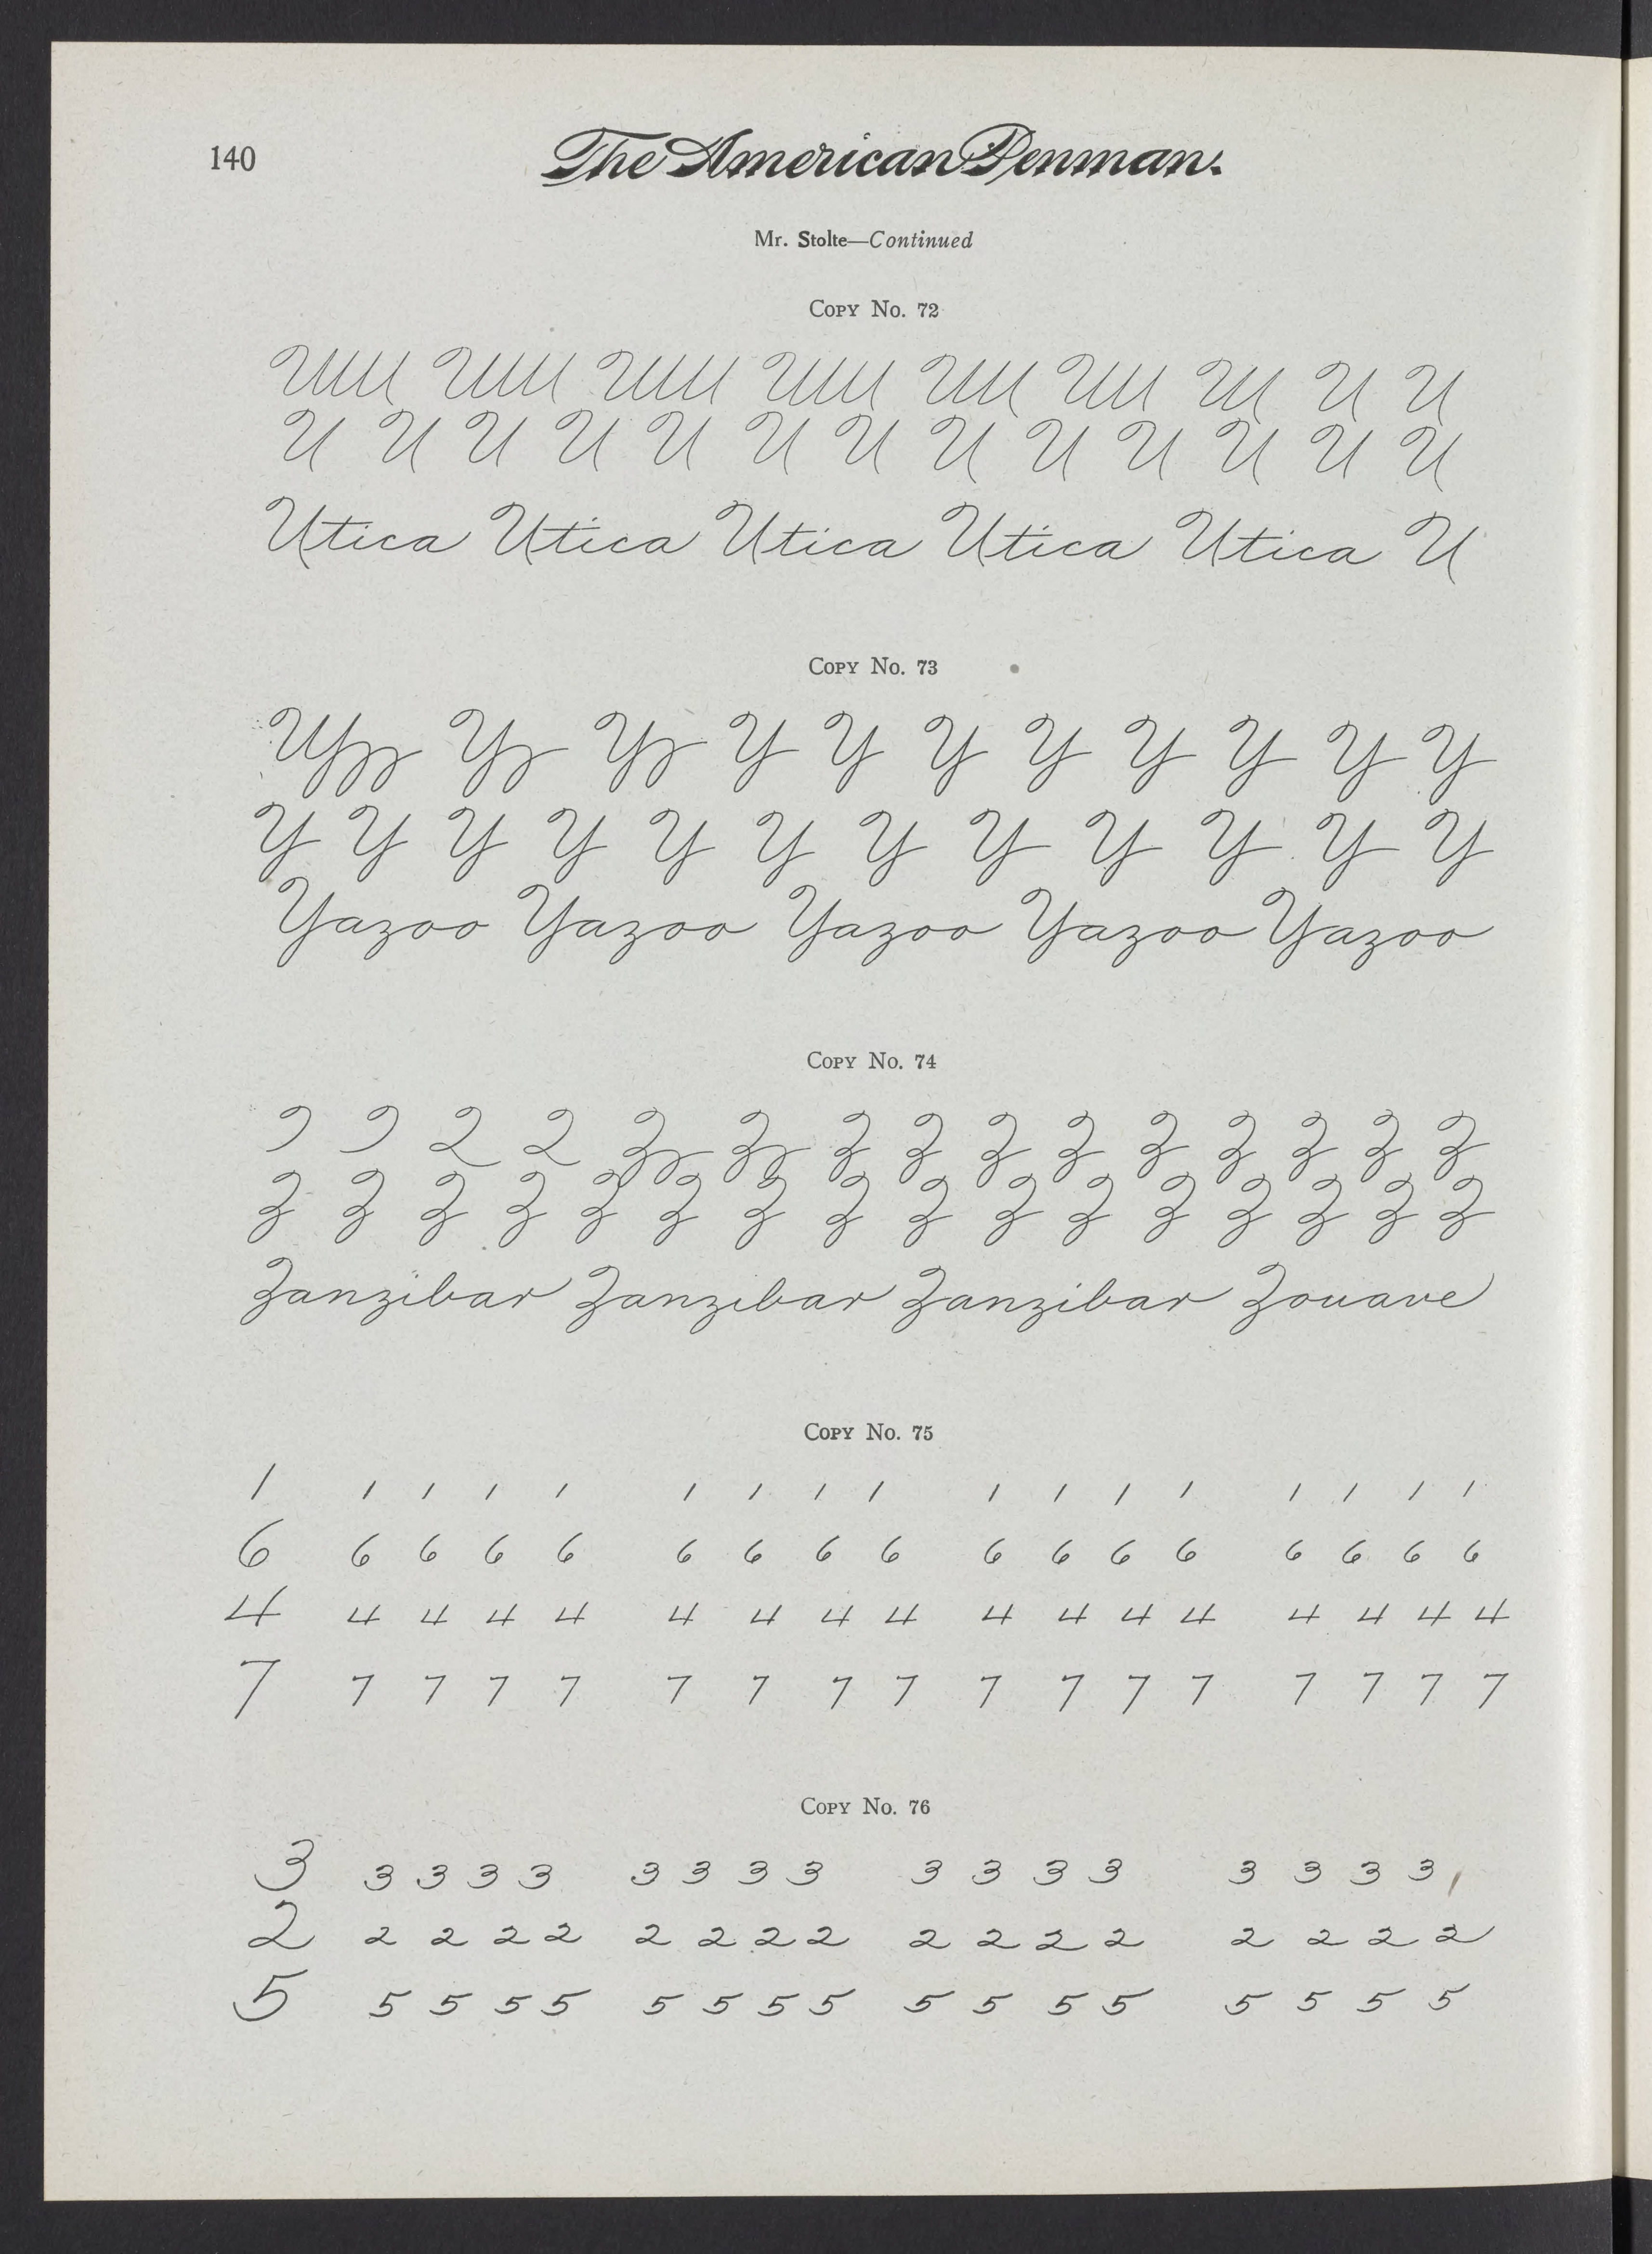 140
The American Penman.
Mr. Stolte—Continued
Copy No. 72
U U U U U U U U U
U U U U U U U U U U U U U
Utica Utica Utica Utica Utica U
Copy No. 73
Y Y Y Y Y Y Y Y Y Y Y
Y Y Y Y Y Y Y Y Y Y Y Y
Yazoo Yazoo Yazoo Yazoo Yazoo
Copy No. 74
2 2 Z Z Z Z Z Z Z Z Z Z Z
Z Z Z Z Z Z Z Z Z Z Z Z Z Z Z Z
Zanzibar Zanzibar Zanzibar Zouave
Copy No. 75
1 1 1 1 1 1 1 1 1 1 1 1 1 1 1 1 1
6 6 6 6 6 6 6 6 6 6 6 6 6 6 6 6 6
4 4 4 4 4 4 4 4 4 4 4 4 4 4 4 4 4
7 7 7 7 7 7 7 7 7 7 7 7 7 7 7 7 7
Copy No. 76
3 3 3 3 3 3 3 3 3 3 3 3 3 3 3 3 3
2 2 2 2 2 2 2 2 2 2 2 2 2 2 2 2 2
5 5 5 5 5 5 5 5 5 5 5 5 5 5 5 5 5